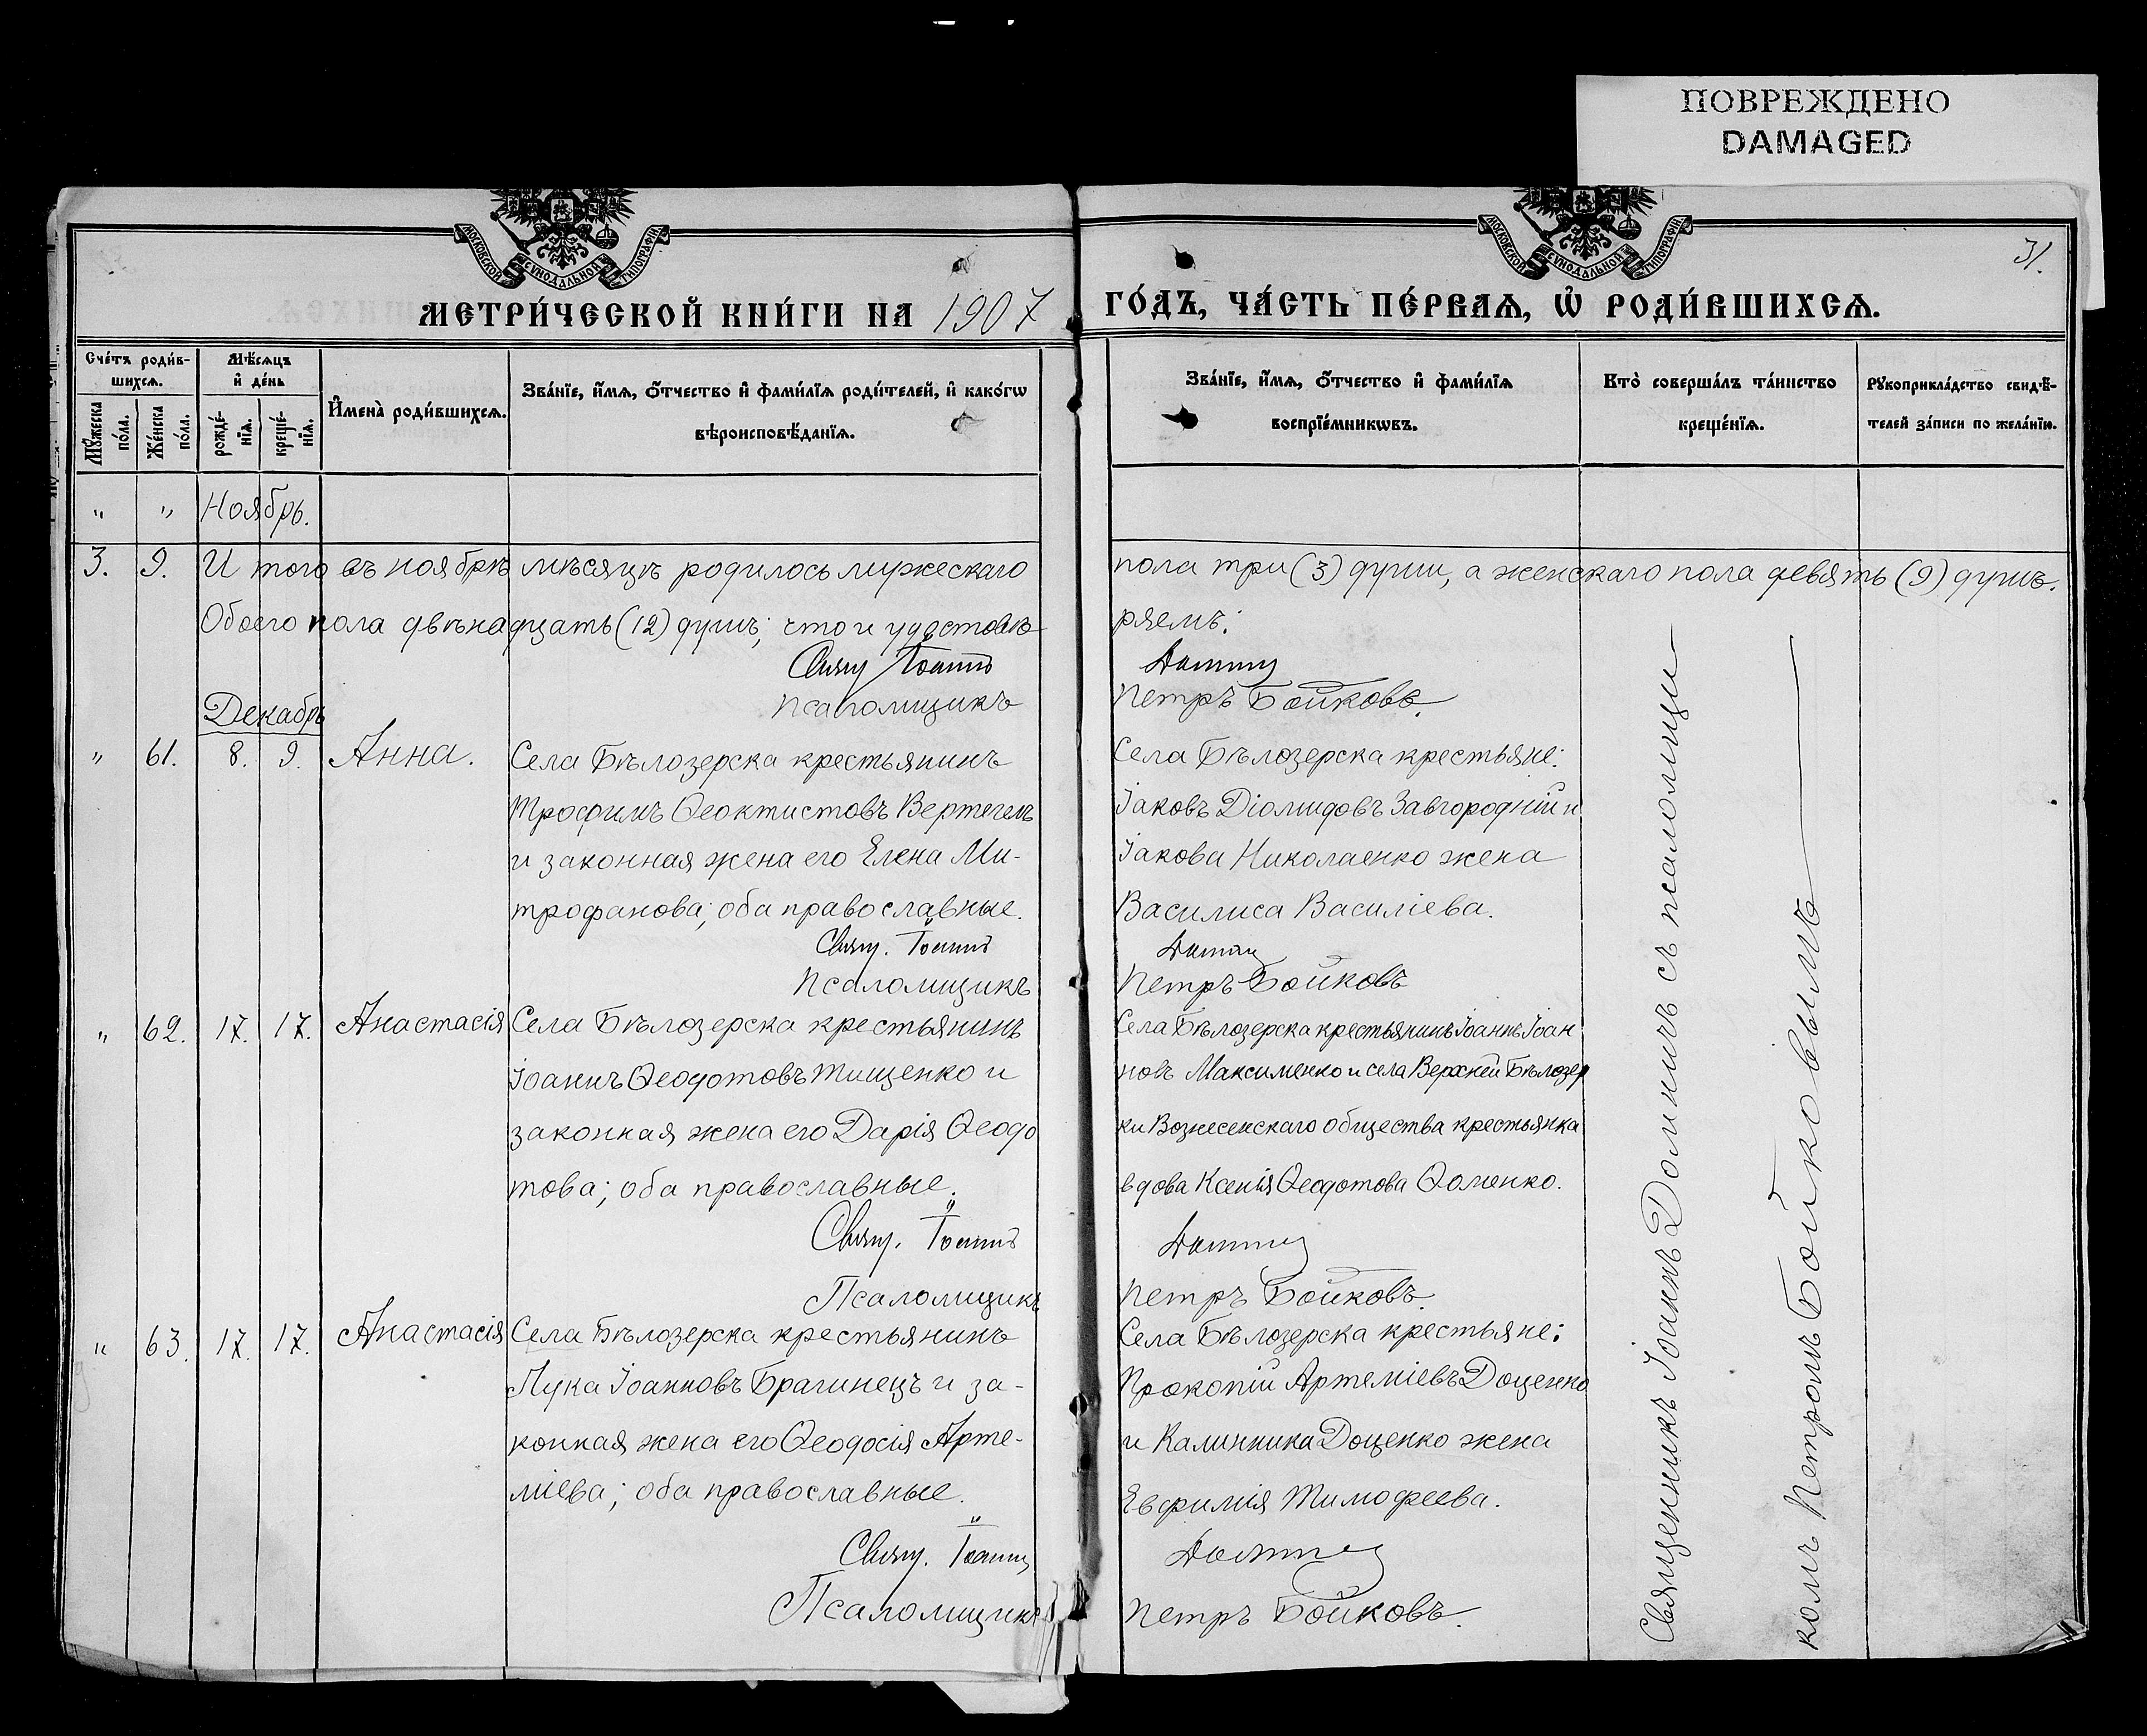 ПОВРЕЖДЕНО
DAMAGED
МОСКОВСКОЙ СУНОДАЛЬНОЙ ТИПОГРАФІИ
МОСКОВСКОЙ СУНОДАЛЬНОЙ ТИПОГРАФІИ
31.
МЕТРИ́ЧЕСКОЙ КНИ́ГИ НА 1907
ГО́ДЪ, ЧА́СТЬ ПЕ́РВАѦ, Ѡ҆ РОДИ́ВШИХСѦ.
Сче́тъ роди́в-
шихсѧ.
Мꙋ́жеска
по́ла.
Же́нска
по́ла.
Мѣ́сѧцъ
и҆ де́нь
рожде́-
нїѧ.
креще́-
нїѧ.
И҆мена̀ роди́вшихсѧ.
Зва́нїе, и҆́мѧ, ѻ҆́тчество и҆ фами́лїѧ роди́телей, и҆ како́гѡ
вѣроисповѣ́данїѧ.
Зва́нїе, и҆́мѧ, ѻ҆́тчество и҆ фами́лїѧ
воспрїе́мникѡвъ.
Кто̀ соверша́лъ та́инство
креще́нїѧ.
Рꙋкоприкла́дство свидѣ́-
телей за́писи по жела́нїю.
" " Ноябрь.
3. 9. И того въ ноябрѣ мѣсяцѣ родилось мужескаго
пола три (3) души, а женскаго пола девять (9) душъ.
Обоего пола двѣнадцать (12) душъ; что и удостовѣ-
ряемъ:
Свящ. Іоаннъ
Псаломщикъ
Петръ Бойковъ.
Декабрь
" 61. 8. 9. Анна.
Села Бѣлозерска крестьянинъ
Трофимъ Ѳеоктистовъ Вертегелъ
и законная жена его Елена Ми-
трофанова; оба православные.
Свящ. Іоаннъ
Псаломщикъ
Села Бѣлозерска крестьяне:
Іаковъ Діомидовъ Завгородній и
Іакова Николаенко жена
Василиса Василіева.
Петръ Бойковъ
" 62. 17. 17. Анастасія
Села Бѣлозерска крестьянинъ
Іоаннъ Ѳеодотовъ Тищенко и
законная жена его Дарія Ѳеодо
това; оба православные.
Свящ. Іоаннъ
Псаломщикъ
Села Бѣлозерска крестьянинъ Іоаннъ Іоан
новъ Максименко и села Верхней Бѣлозер
ки Вознесенскаго общества крестьянка
вдова Ксенія Ѳеодотова Ѳоменко.
Петръ Бойковъ.
" 63. 17. 17. Анастасія
Села Бѣлозерска крестьянинъ
Лука Іоанновъ Брагинецъ и за-
конная жена его Ѳеодосія Арте-
міева; оба православные.
Свящ. Іоаннъ
Псаломщикъ
Села Бѣлозерска крестьяне:
Прокопій Артеміевъ Доценко
и Калинника Доценко жена
Евфимія Тимофеева.
Петръ Бойковъ.
Священникъ Іоаннъ Долничъ съ псаломщи-
комъ Петромъ Бойковымъ